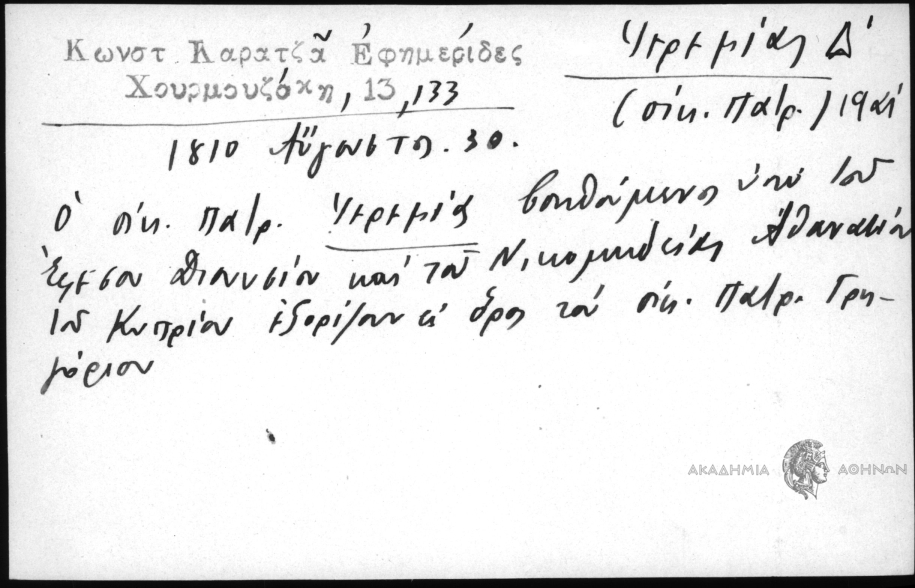 Κωνστ Καρατζᾶ Ἐφημερίδες
Χουρμουζάκη, 13, 133
Ἱερεμίας Δ΄
(οἰκ. Πατρ.)
1810 Αὔγουστος 30.
Ὁ οἰκ. Πατρ. Ἱερεμίας βοηθούμενος ὑπὸ τοῦ
Ἐφέσου Διονυσίου καὶ τοῦ Νικομηδείας Ἀθανασίου
τοῦ Κυπρίου ἐξορίζουν εἰς ὄρος τὸν οἰκ. Πατρ. Γρη-
γόριον
ΑΚΑΔΗΜΙΑ ΑΘΗΝΩΝ